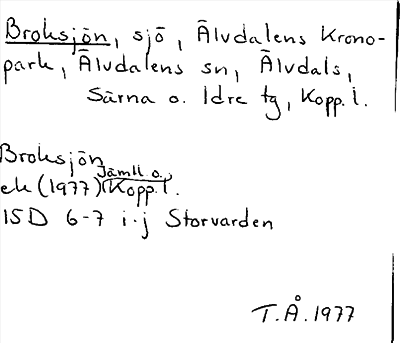 Broksjön, sjö, Älvdalens Krono-
park, Älvdalens sn, Älvdals,
Särna o. Idre tg, Kopp. l.
Broksjön
Jämtl. o.
ek (1977) Kopp. l.
15D 6-7 i-j Storvarden
T.Å. 1977